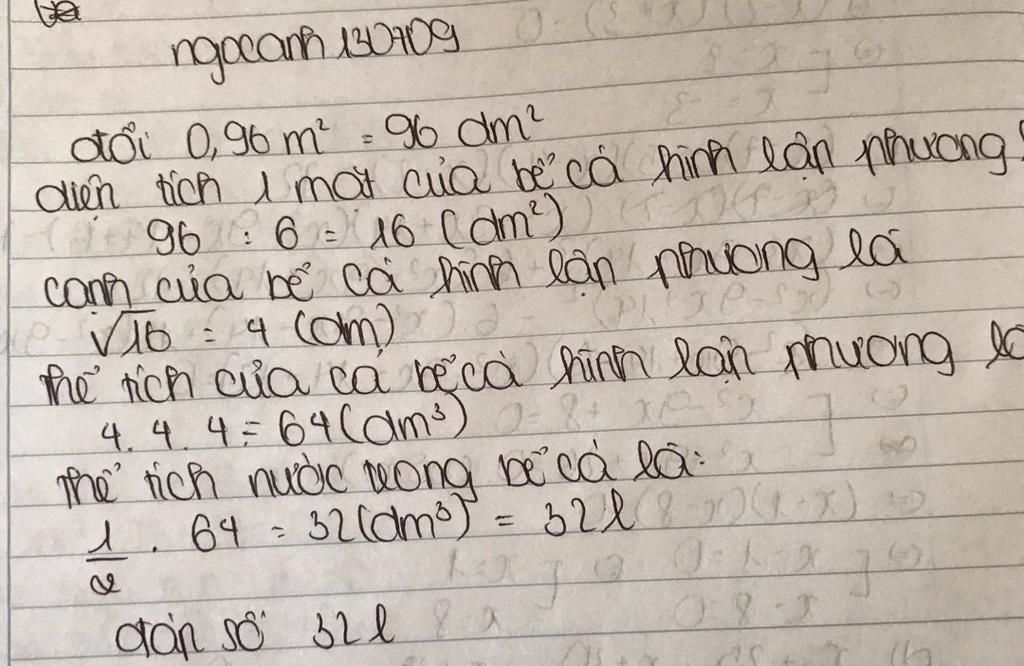 ngocanh130709
đổi 0,96 m² = 96 dm²
diện tích 1 mặt của bể cá hình lận phương
96 : 6 = 16 (dm²)
cạnh của bể cá hình lận phương là
√16 = 4 (dm)
thể tích của cả bể cá hình lận phương là
4. 4. 4 = 64 (dm³)
thể tích nước trong bể cá là:
1/2 . 64 = 32 (dm³) = 32 l
đán số 32 l